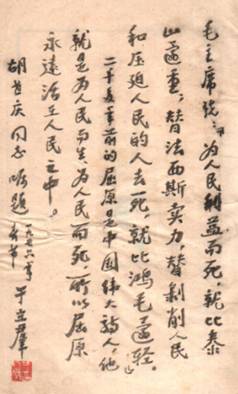 毛主席说：“为人民利益而死，就比泰
山还重；替法西斯卖力，替剥削人民
和压迫人民的人去死，就比鸿毛还轻。”
二千多年前的屈原是中国伟大诗人，他
就是为人民而生、为人民而死，所以屈原
永远活在人民之中。
胡 庆同志嘱题
一九七六年
春节
于立群